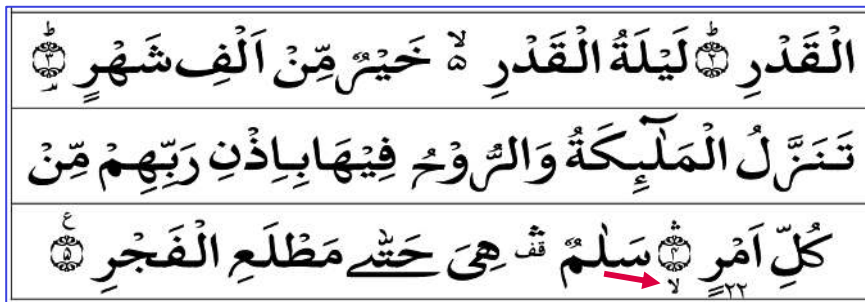 الْقَدْرِ ۟ؕ۲ لَیْلَةُ الْقَدْرِ ۙ۬ خَیْرٌ مِّنْ اَلْفِ شَهْرٍ ۟ؕ۳
تَنَزَّلُ الْمَلٰٓىِٕكَةُ وَالرُّوْحُ فِیْهَا بِاِذْنِ رَبِّهِمْ مِّنْ
كُلِّ اَمْرٍ ۟ۛۙ۴ سَلٰمٌ ۛ۫ قف هِیَ حَتّٰی مَطْلَعِ الْفَجْرِ ۟۵ ع
۲۲